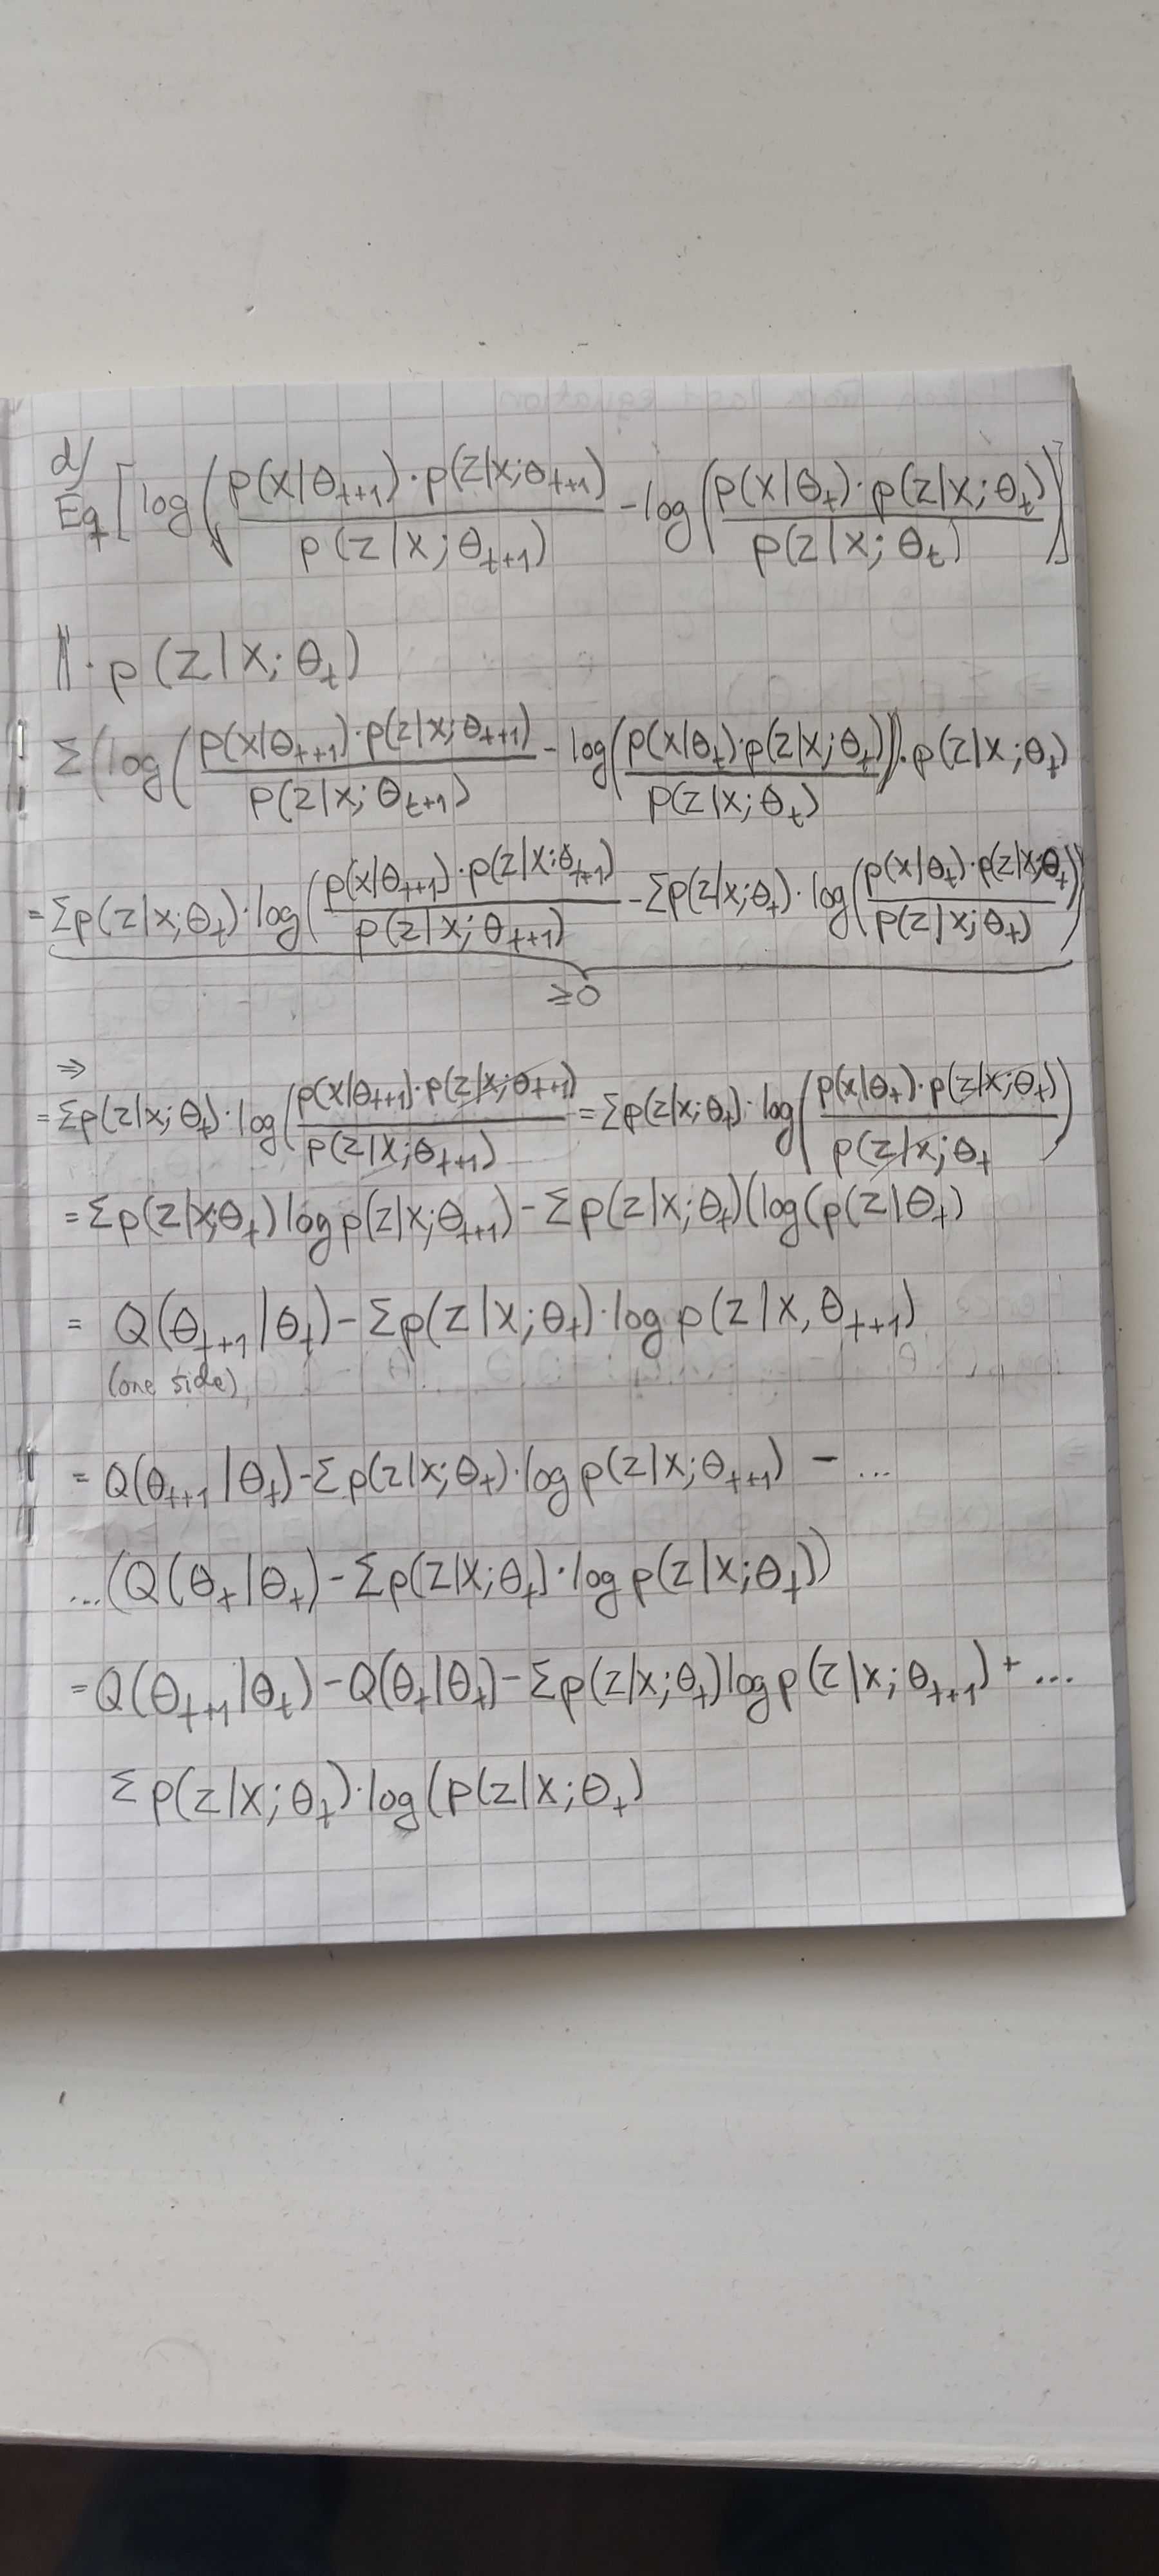 d)
E_{q_t} [log(p(x|θ_{t+1})·p(z|x;θ_{t+1}) / p(z|x;θ_{t+1}) - log(p(x|θ_t)·p(z|x;θ_t) / p(z|x;θ_t))]
||· p(z|x;θ_t)
Σ(log(p(x|θ_{t+1})·p(z|x;θ_{t+1}) / p(z|x;θ_{t+1}) - log(p(x|θ_t)·p(z|x;θ_t) / p(z|x;θ_t)))·p(z|x;θ_t)
= Σp(z|x;θ_t)·log(p(x|θ_{t+1})·p(z|x;θ_{t+1}) / p(z|x;θ_{t+1}) - Σp(z|x;θ_t)·log(p(x|θ_t)·p(z|x;θ_t) / p(z|x;θ_t))
≥0
⇒
= Σp(z|x;θ_t)·log(p(x|θ_{t+1})·p(z|x;θ_{t+1}) / p(z|x;θ_{t+1}) = Σp(z|x;θ_t)·log(p(x|θ_t)·p(z|x;θ_t) / p(z|x;θ_t)
= Σp(z|x;θ_t) log p(z|x;θ_{t+1}) - Σp(z|x;θ_t)(log(p(z|θ_t)
= Q(θ_{t+1}|θ_t) - Σp(z|x;θ_t)·log p(z|x,θ_{t+1})
(one side)
= Q(θ_{t+1}|θ_t) - Σp(z|x;θ_t)·log p(z|x;θ_{t+1}) - ...
...(Q(θ_t|θ_t) - Σp(z|x;θ_t)·log p(z|x;θ_t))
= Q(θ_{t+1}|θ_t) - Q(θ_t|θ_t) - Σp(z|x;θ_t) log p(z|x;θ_{t+1}) + ...
Σp(z|x;θ_t)·log(p(z|x;θ_t)